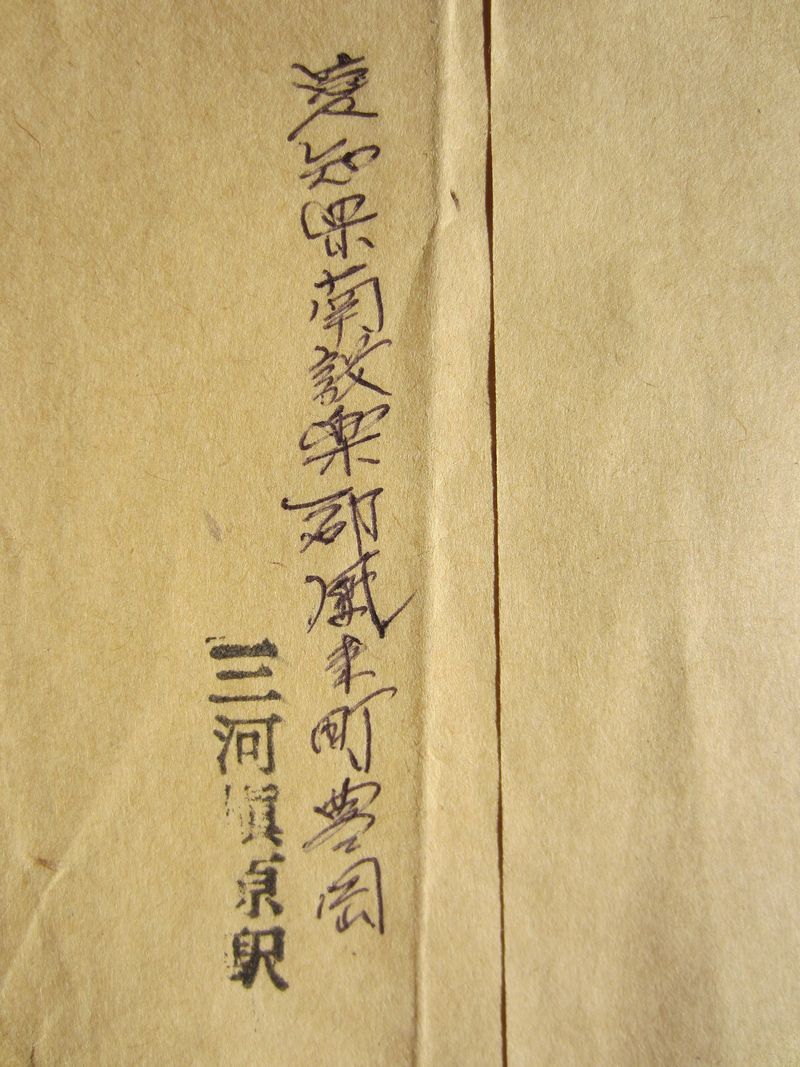 愛知県南設楽郡鳳来町豊岡
三河槇原駅